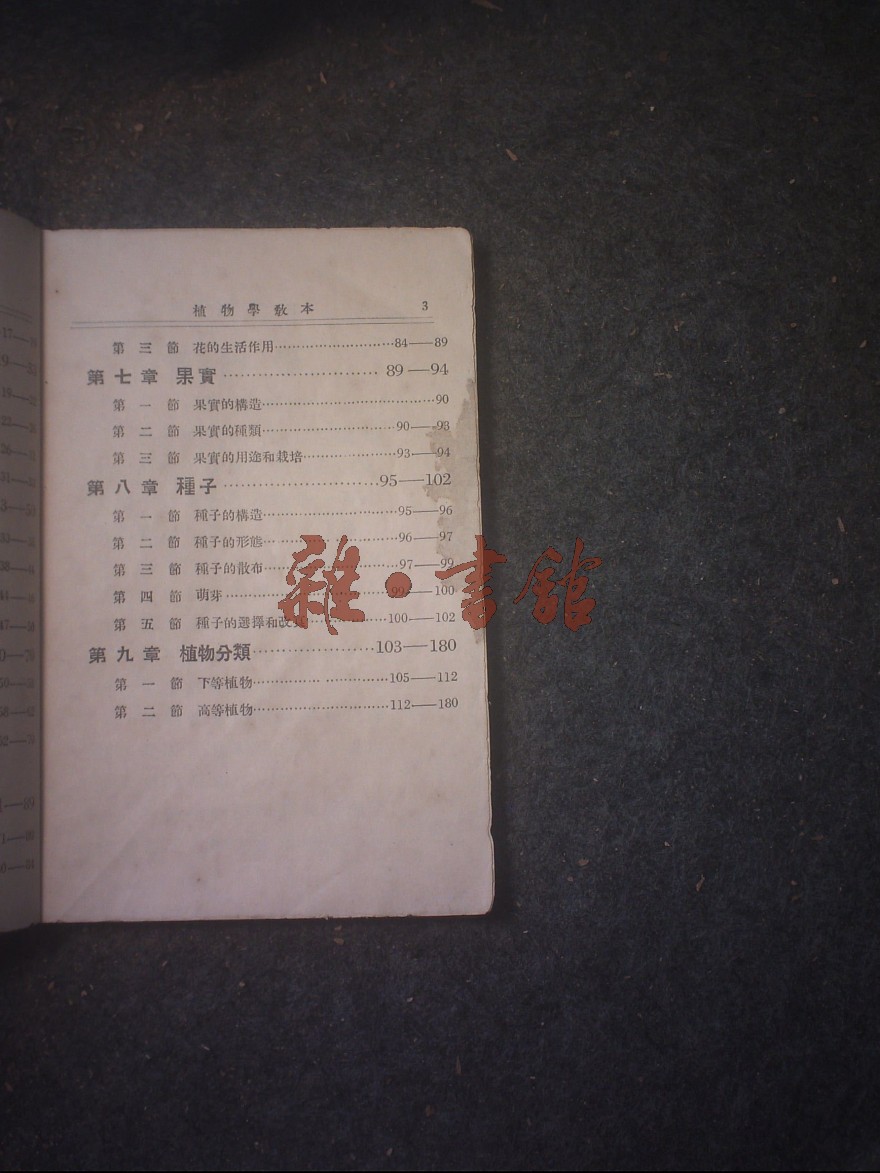 植物學教本 3
第三節 花的生活作用 84——89
第七章 果實 89—94
第一節 果實的構造 90
第二節 果實的種類 90——93
第三節 果實的用途和栽培 93——94
第八章 種子 95—102
第一節 種子的構造 95——96
第二節 種子的形態 96——97
第三節 種子的散布 97——99
第四節 萌芽 99——100
第五節 種子的選擇和改良 100——102
第九章 植物分類 103—180
第一節 下等植物 105——112
第二節 高等植物 112——180
雜·書館